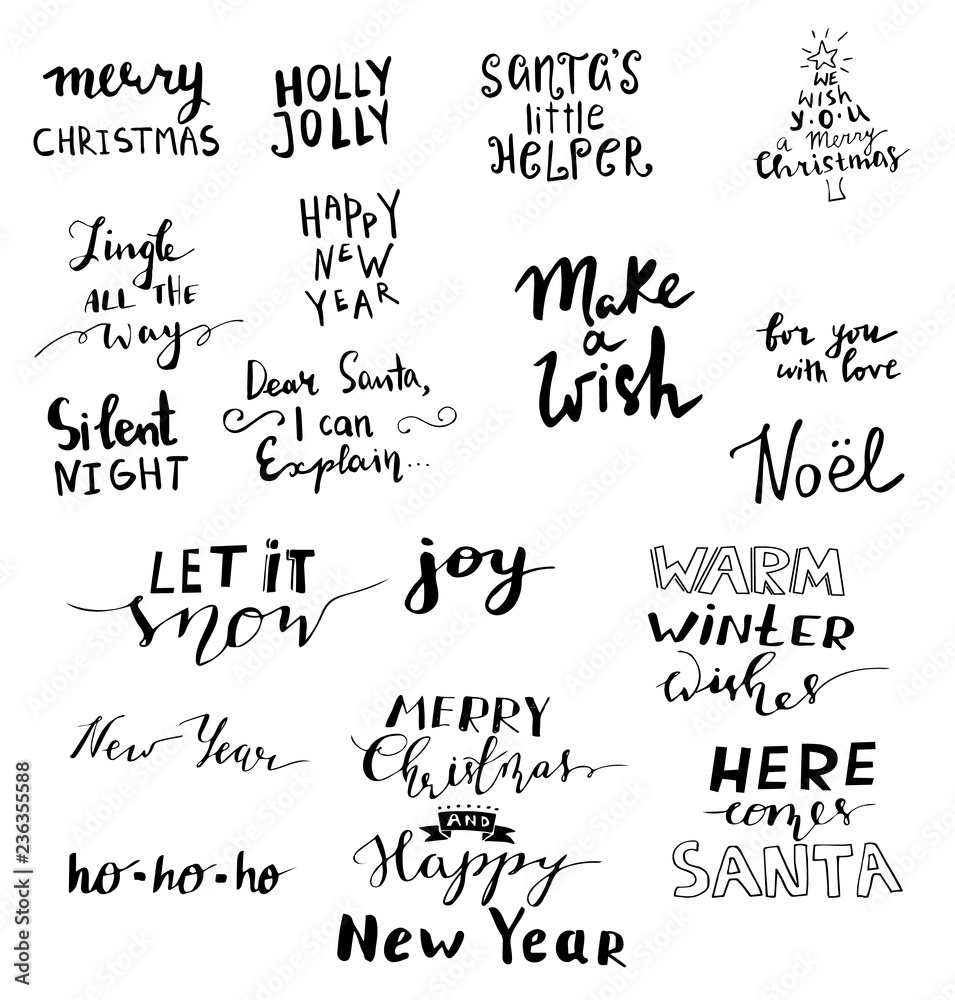 merry
CHRISTMAS
HOLLY
JOLLY
SANTA'S
little
HELPER
WE
WISH
Y·O·U
a Merry
Christmas
Jingle
ALL THE
way
HAPPY
NEW
YEAR
Make
a
Wish
for you
with love
Silent
NIGHT
Dear Santa,
I can
Explain...
Noël
LET iT
snow
joy
WARM
WINTER
wishes
New Year
MERRY
Christmas
AND
Happy
New Year
HERE
comes
SANTA
ho-ho-ho
Adobe Stock | #236355588